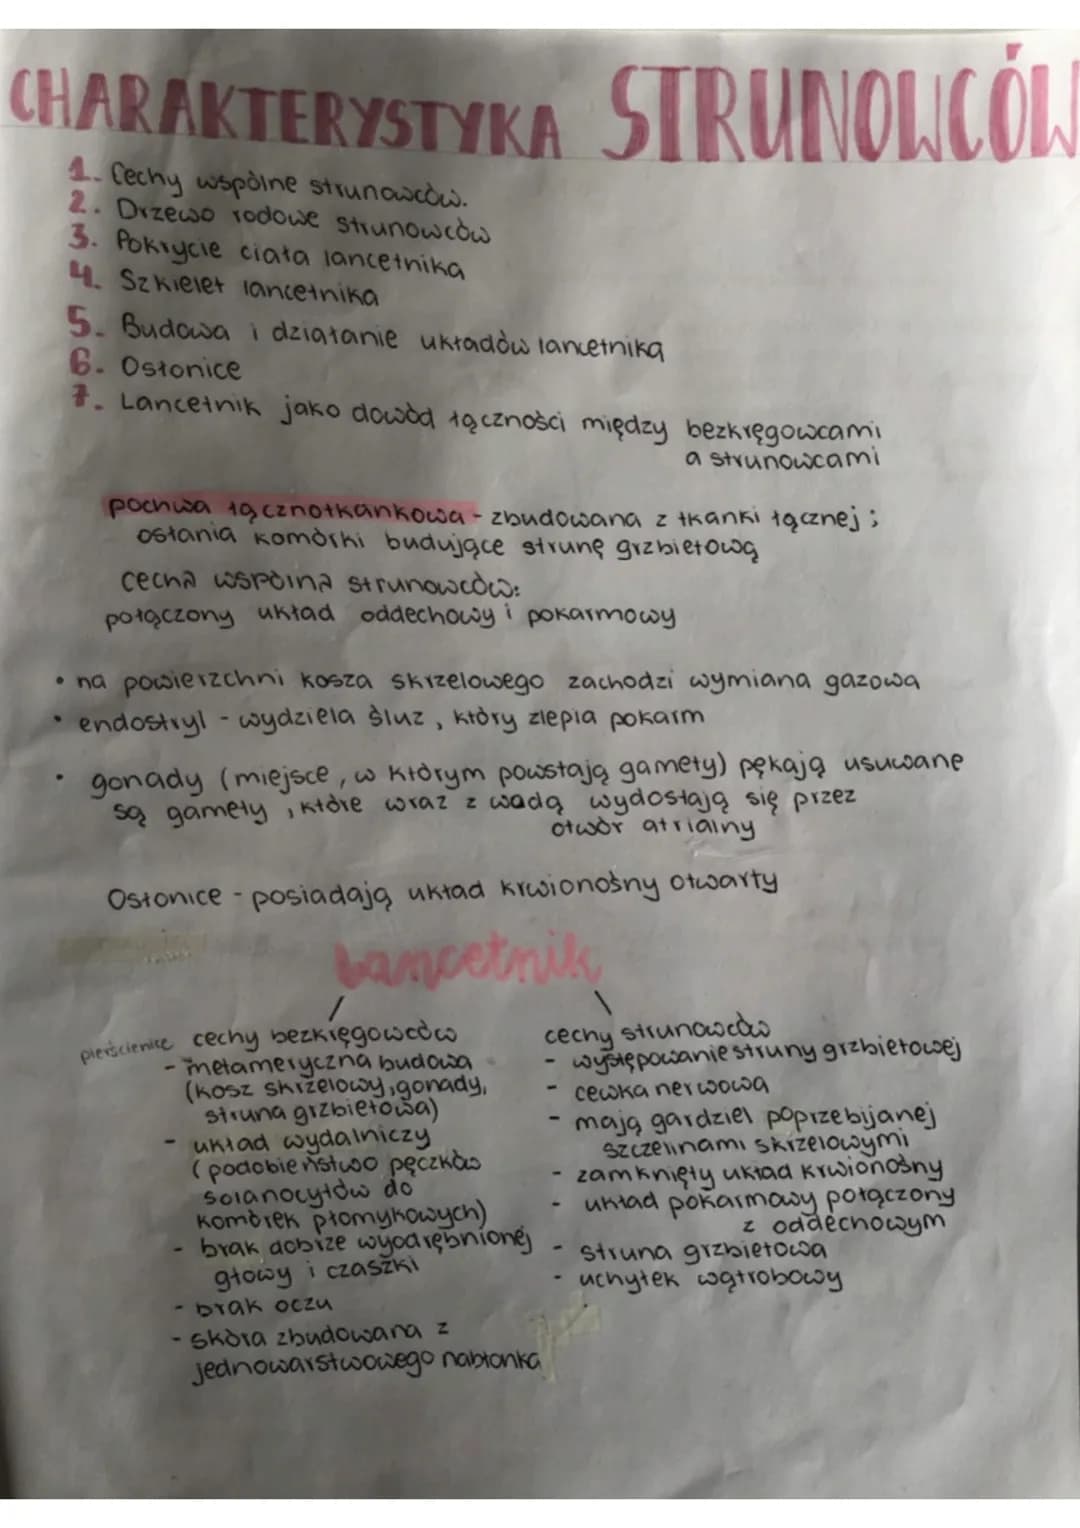 CHARAKTERYSTYKA STRUNOWCÓW
1. Cechy wspólne strunowców.
2. Drzewo rodowe strunowców
3. Pokrycie ciała lancetnika
4. Szkielet lancetnika
5. Budowa i działanie układów lancetnika
6. Osłonice
7. Lancetnik jako dowód łączności między bezkręgowcami
a strunowcami
pochwa łącznotkankowa - zbudowana z tkanki łącznej ;
osłania komórki budujące strunę grzbietową
cecha wspólna strunowców:
połączony układ oddechowy i pokarmowy
• na powierzchni kosza skrzelowego zachodzi wymiana gazowa
• endostyl - wydziela śluz, który zlepia pokarm
• gonady (miejsce, w którym powstają gamety) pękają usuwane
są gamety, które wraz z wodą wydostają się przez
otwór atrialny
Osłonice - posiadają układ krwionośny otwarty
Lancetnik
pierścienice cechy bezkręgowców
- metameryczna budowa
(kosz skrzelowy, gonady,
struna grzbietowa)
- układ wydalniczy
(podobieństwo pęczków
solanocytów do
komórek płomykowych)
- brak dobrze wyodrębnionej
głowy i czaszki
- brak oczu
- skóra zbudowana z
jednowarstwowego nabłonka
cechy strunowców
- występowanie struny grzbietowej
- cewka nerwowa
- mają gardziel poprzebijanej
szczelinami skrzelowymi
- zamknięty układ krwionośny
- układ pokarmowy połączony
z oddechowym
- struna grzbietowa
- uchyłek wątrobowy